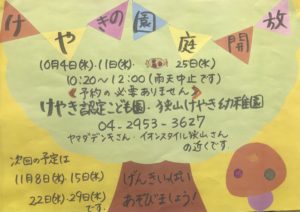 けやきの園庭開放
10月4日(水)・11日(水)・25日(水)
10:20~12:00(雨天中止です)
《予約の必要ありません》
けやき認定こども園・狭山けやき幼稚園
04-2953-3627
ヤマダデンキさん・イオンスタイル狭山さん
の近くです。
次回の予定は
11月8日(水)・15日(水)
22日(水)・29日(水)
です。
げんきいっぱい
あそびましょう!